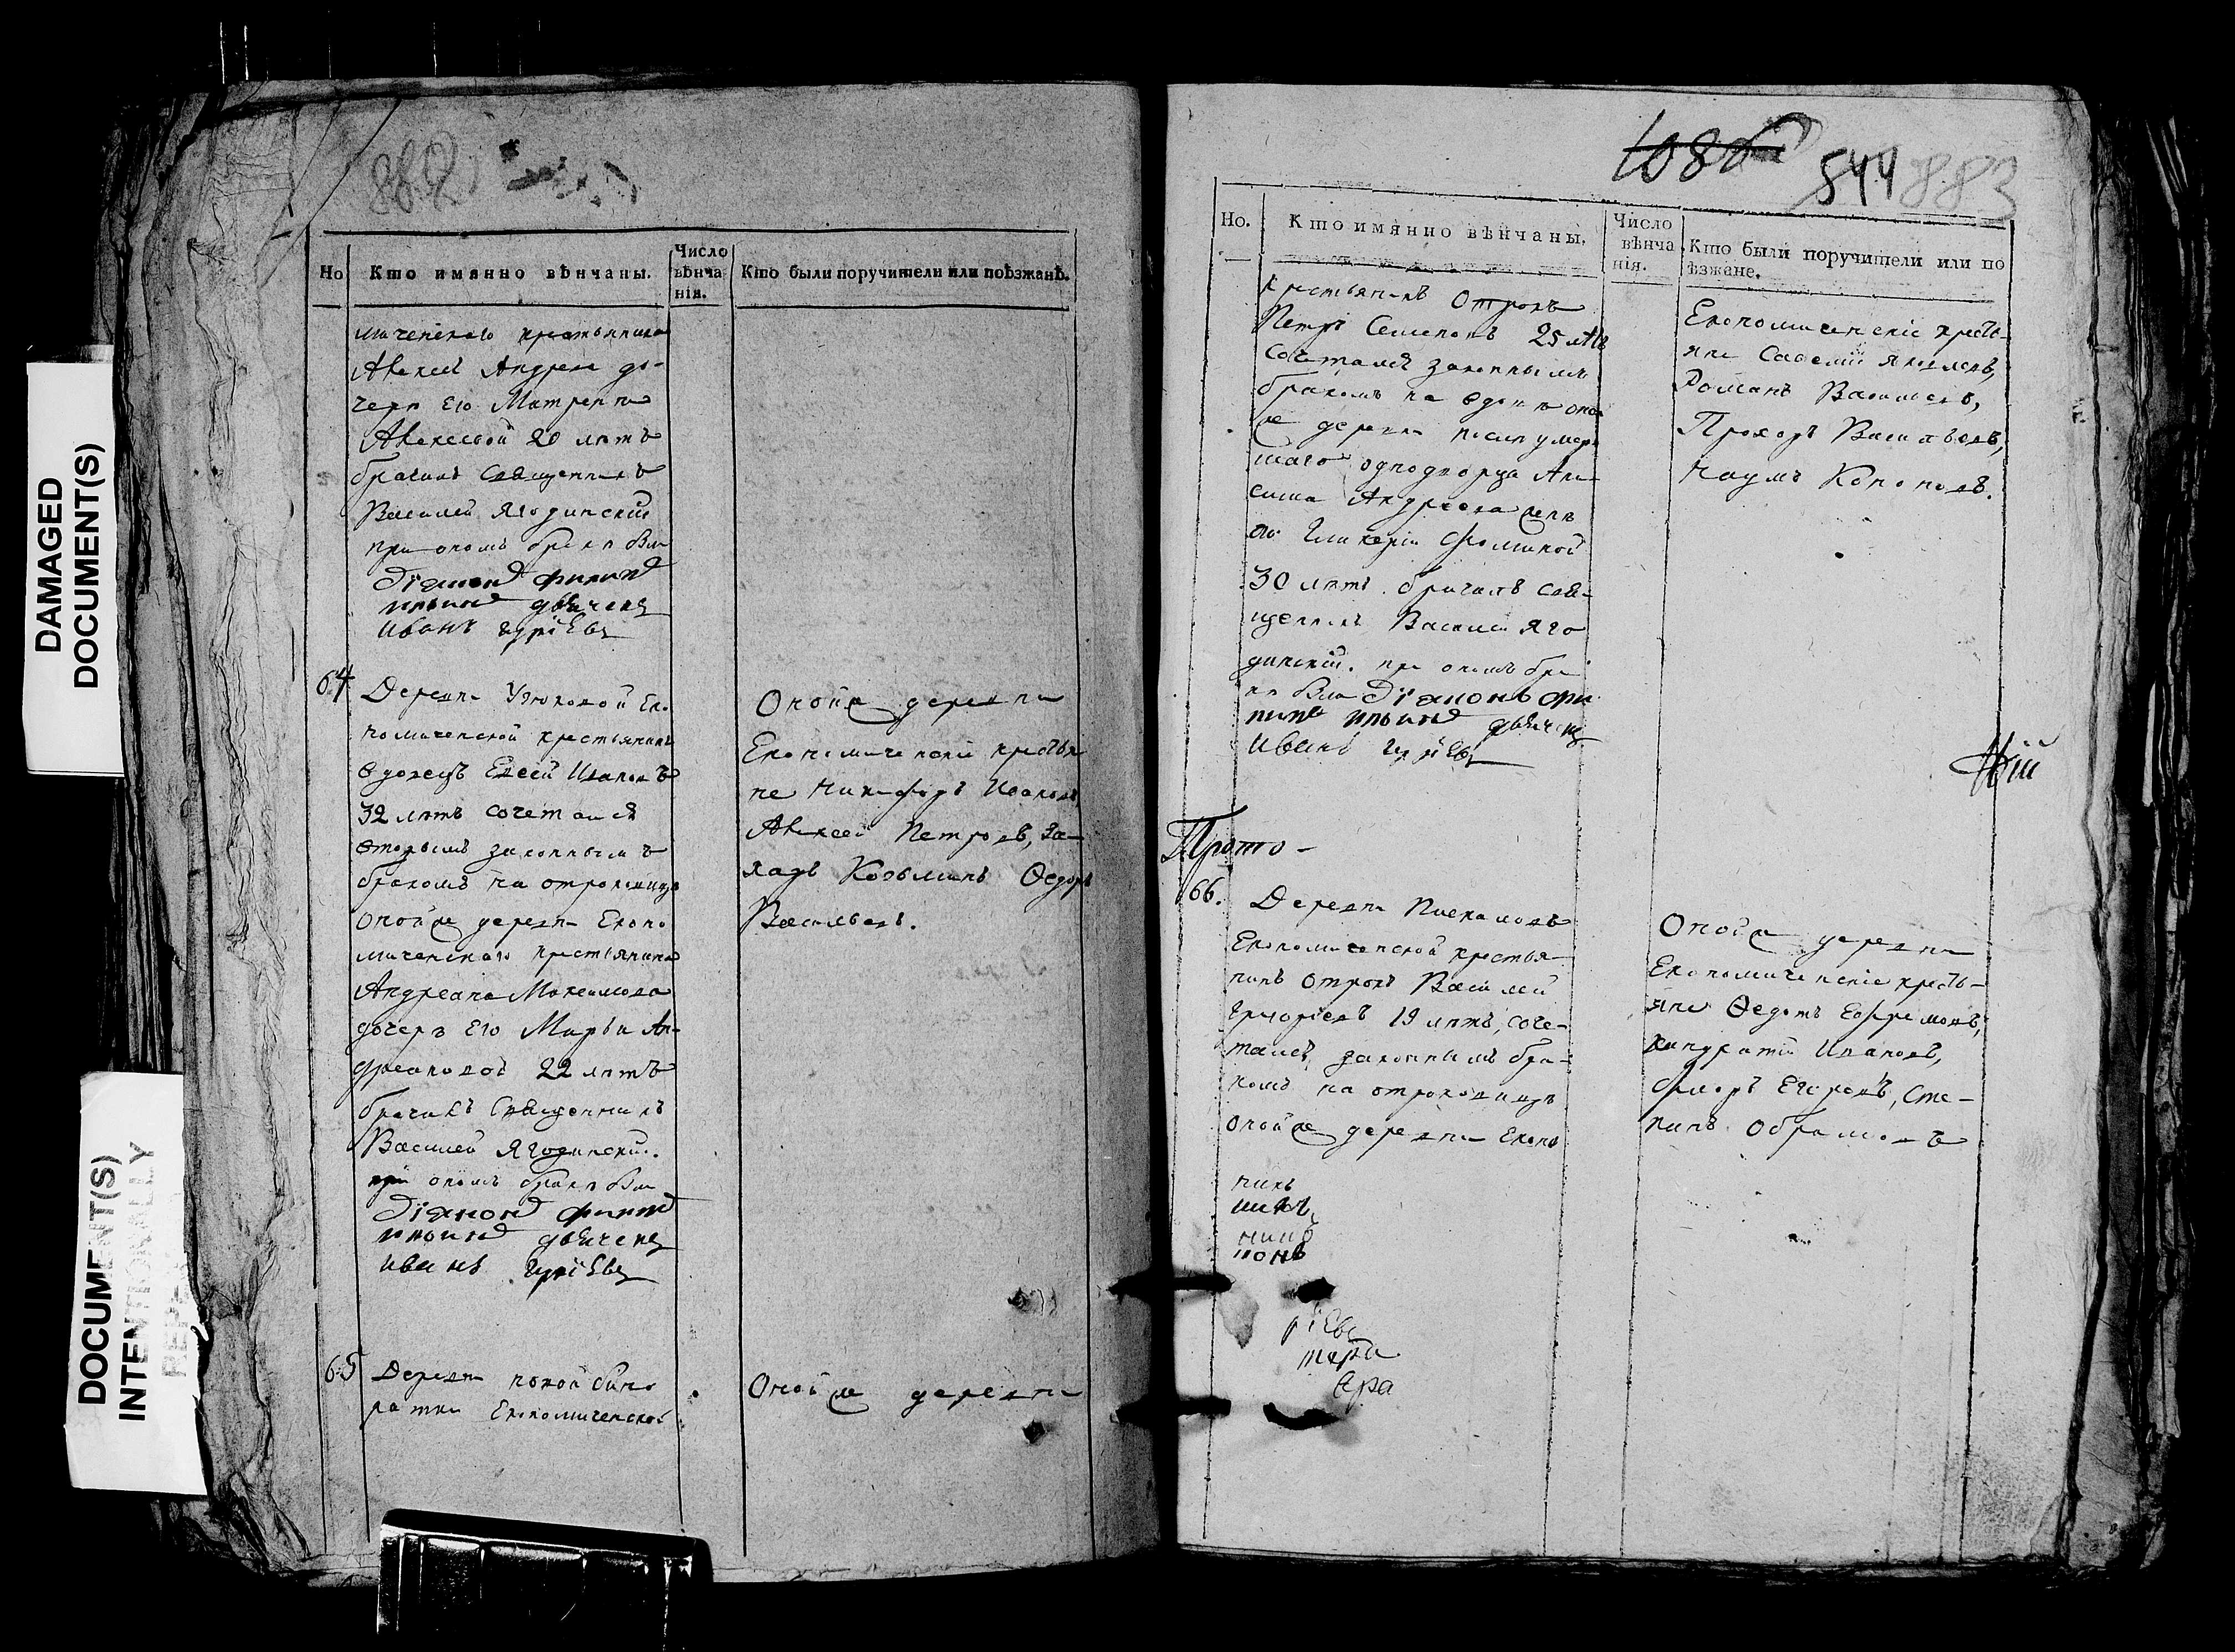 DAMAGED
DOCUMENT(S)
DOCUMENT(S)
INTENTIONALLY
882
Но
Кто имянно вѣнчаны.
Число
вѣнча
нія.
Кто были поручители или поѣзжанѣ.
миченскаго крестьянина
Алексея Андреева до-
чери его Матрены
Алексевой 20 лѣтъ
брачилъ Священникъ
Василей Ягодинскій
при ономъ браке были
Діяконъ Филипъ
Ильинъ дьячекъ
Иванъ Гуріевъ
64
Деревни Узюковой Еко
номической крестьянинъ
вдовецъ Евсей Ивановъ
32 лѣтъ сочетался
вторымъ законнымъ
бракомъ на отроковицѣ
оной же деревни Еконо
миченскаго крестьянина
Андреана Максимова
дочерѣ его Марьи Ан-
дреановой 22 лѣтъ
брачилъ Священникъ
Василей Ягодинскій.
при ономъ браке были
Діяконъ Филипъ
Ильинъ дьячекъ
Иванъ Гуріевъ
Оной же деревни
Економиченскіе крестья
не Никифоръ Ивановъ
Алексей Петровъ, За-
харъ Козьминъ Ѳедоръ
Васильевъ.
65
Деревни новой бино
ратки Економиченской
Оной же деревни
1086
544
883
Но.
Кто имянно вѣнчаны.
Число
вѣнча
нія.
Кто были поручители или по
ѣзжане.
крестьянинъ Отрокъ
Петръ Семеновъ 25 лѣтъ
Сочетался законнымъ
бракомъ на вдове оной
же деревни после умер
шаго однодворца Ани-
сима Андреева жене
его Гликеріи Фоминой
30 лѣтъ. брачилъ свя-
щенникъ Василей Яго
динскій. при ономъ бра
ке были Діяконъ Фи
липъ Ильинъ дьячекъ
Иванъ Гуріевъ
Економиченскіе кресть-
яне Савелий Яковлевъ,
Романъ Васильевъ,
Прохоръ Васильевъ,
Наумъ Кононовъ.
Прото-
66.
Деревни Пискаловъ
Економиченской крестья
нинъ отрокъ Василей
Григорьевъ 19 лѣтъ, соче-
тался законнымъ бра-
комъ на отроковицѣ
оной же деревни Еконо
Оной же деревни
Економиченскіе кресть-
яне Ѳедотъ Ефремовъ,
Кандратій Ивановъ,
Флоръ Егоровъ, Сте-
панъ Обрамовъ
никъ
ріевъ